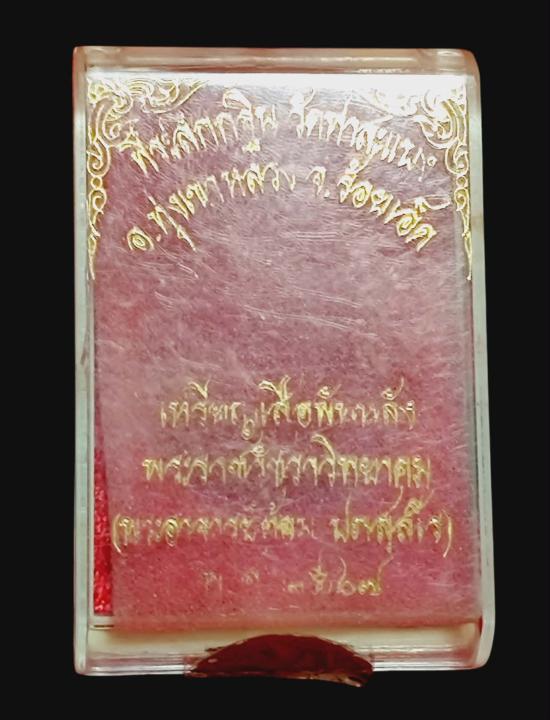 ที่ระลึกกฐิน วัดป่าสะแนะ
อ.ทุ่งเขาหลวง จ.ร้อยเอ็ด
เหรียญเสือหันหลัง
พระราชวัชรวิทยาคม
(พระอาจารย์ต้อม ปภสฺสโร)
๒๕๖๗